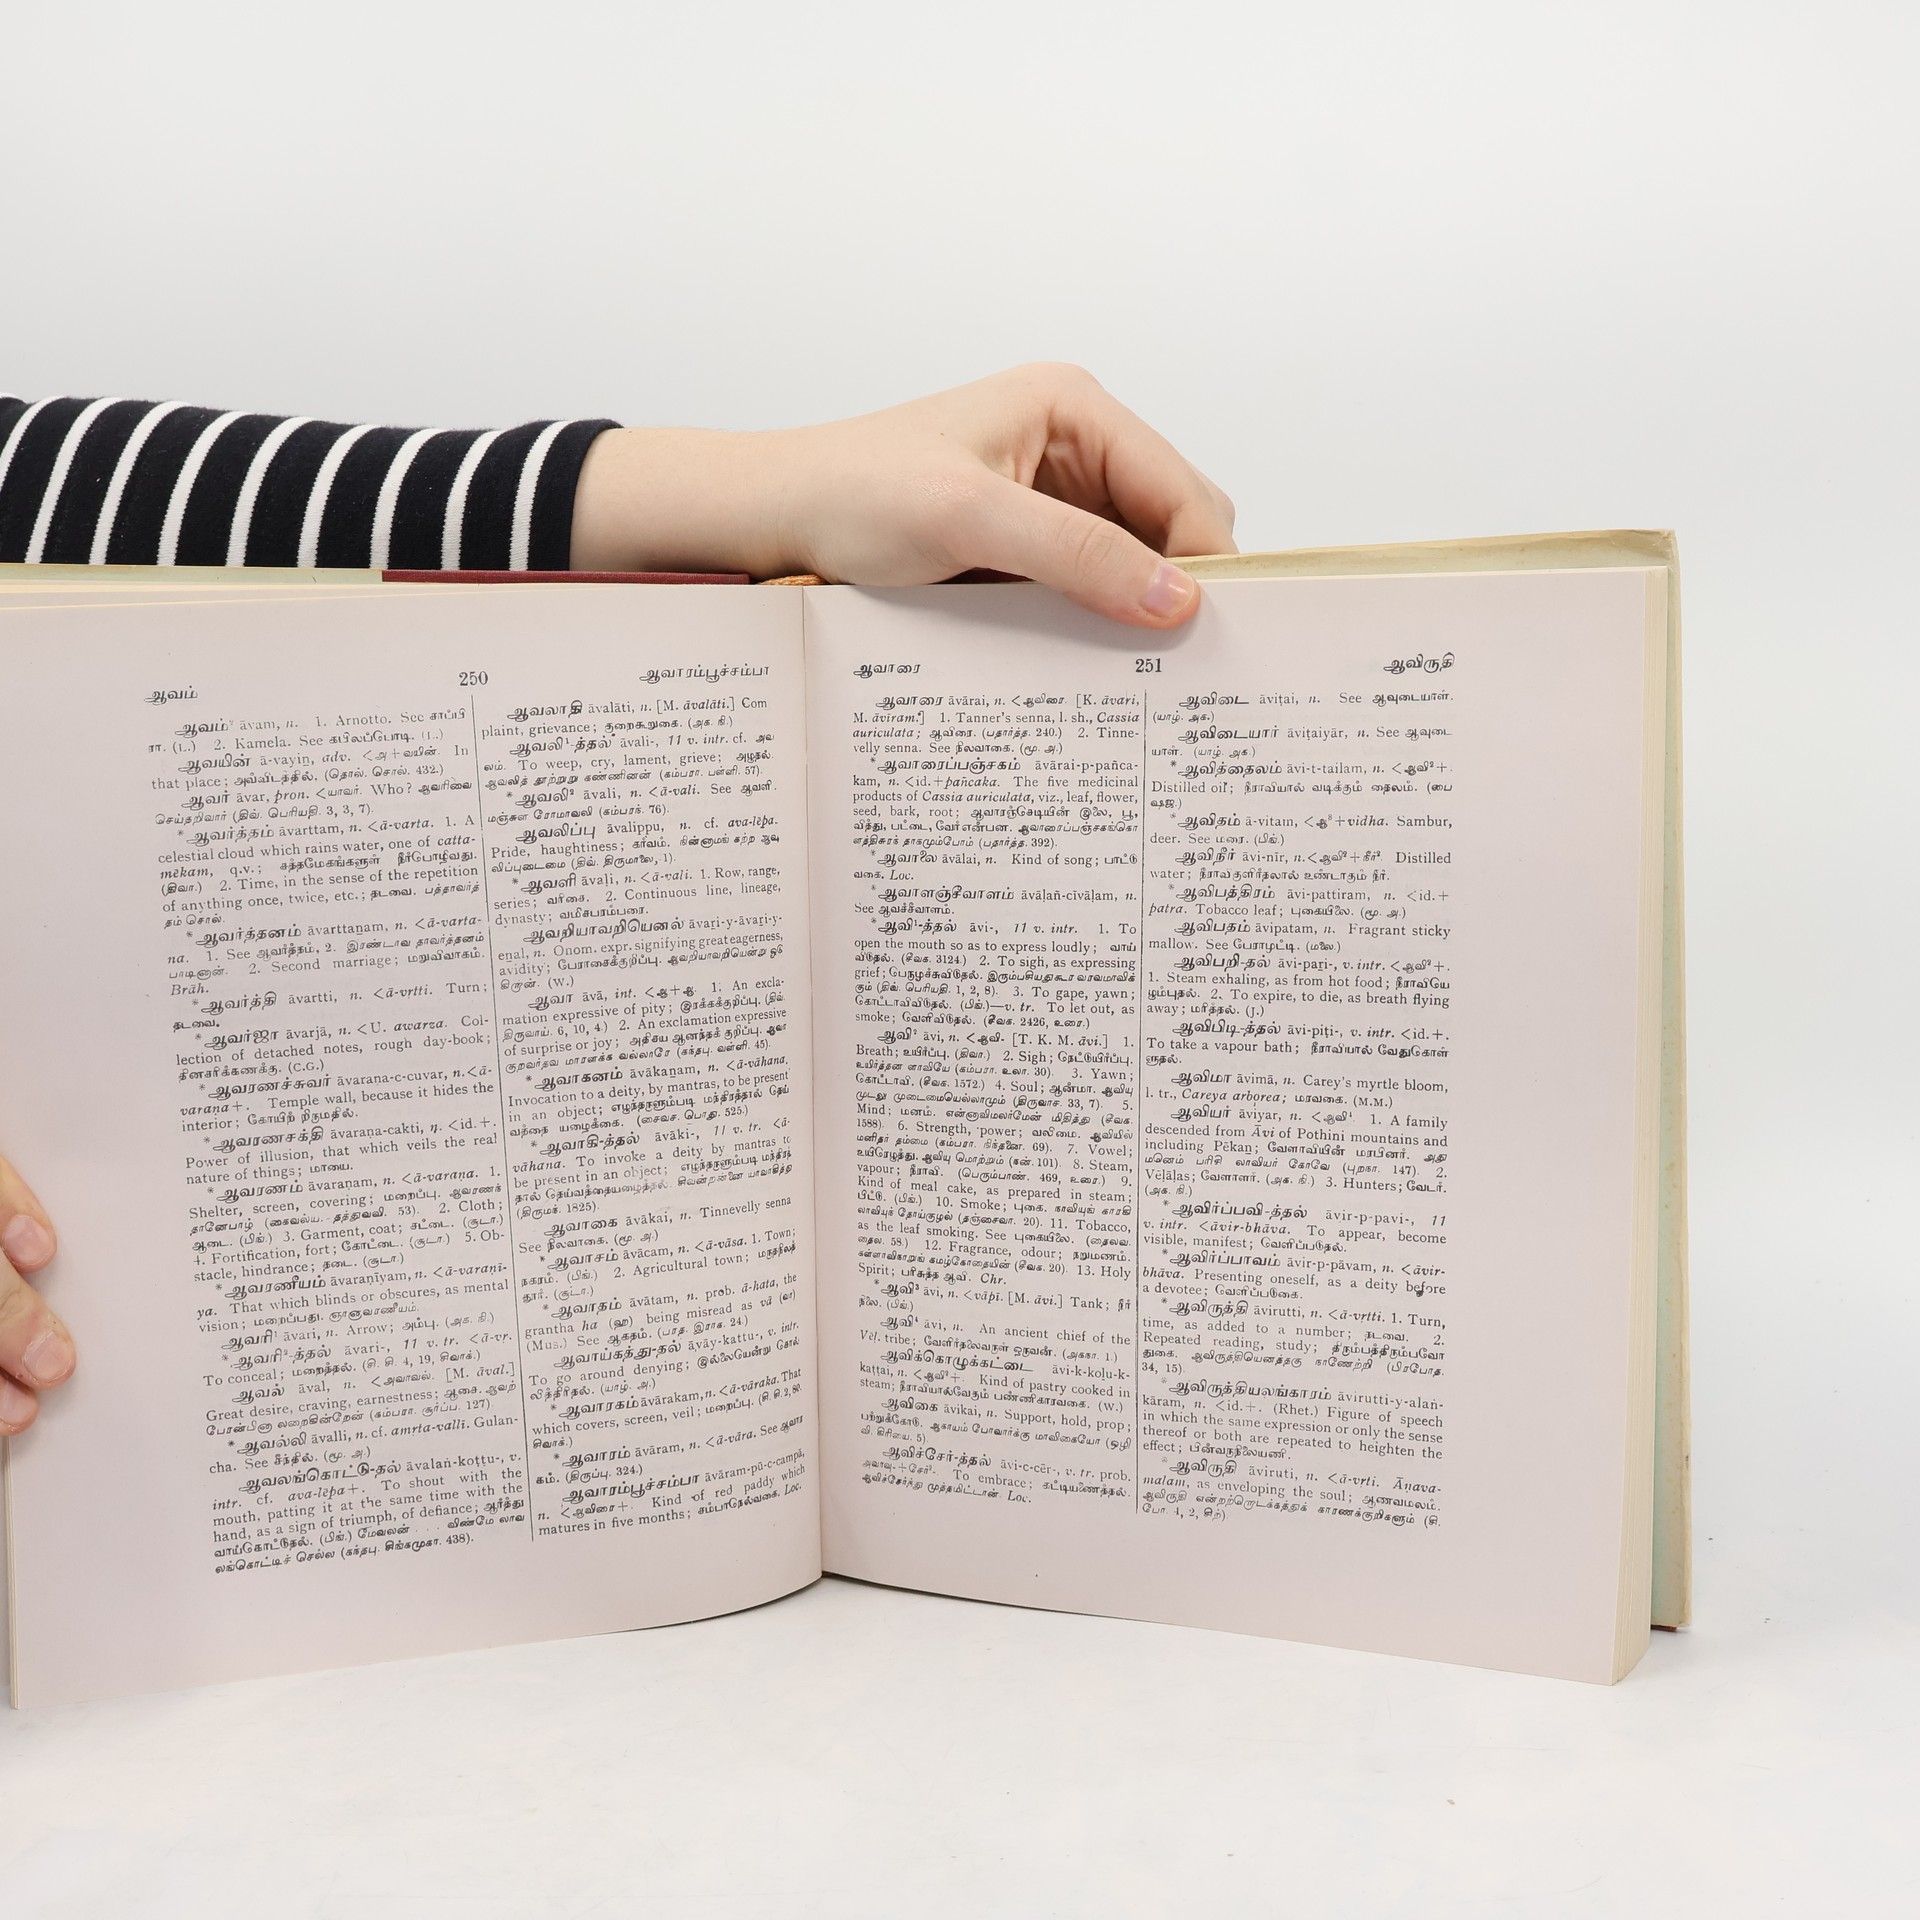 ஆவம்
250
ஆவாரம்பூச்சம்பா
ஆவம்² āvam, n. 1. Arnotto. See சாப்பி
ரா. (L.) 2. Kamela. See கபிலப்போடி. (L.)
ஆவயின் ā-vayiṉ, adv. <அ+வயின். In
that place; அவ்விடத்தில். (தொல். சொல். 432.)
ஆவர் āvar, pron. <யாவர். Who? ஆவரிவை
செய்தறிவார் (திவ். பெரியதி. 3, 3, 7).
*ஆவர்த்தம் āvarttam, n. <ā-varta. 1. A
celestial cloud which rains water, one of catta-
mēkam, q.v.; சத்தமேகங்களுள் நீர்பொழிவது.
(திவா.) 2. Time, in the sense of the repetition
of anything once, twice, etc.; தடவை. பத்தாவர்த்
தம் சொல்.
*ஆவர்த்தனம் āvarttaṉam, n. <ā-varta-
na. 1. See ஆவர்த்தம், 2. இரண்டாவ தாவர்த்தனம்
பாடினான். 2. Second marriage; மறுவிவாகம்.
Brāh.
*ஆவர்த்தி āvartti, n. <ā-vṛtti. Turn;
தடவை.
*ஆவர்ஜா āvarjā, n. <U. awarza. Col-
lection of detached notes, rough day-book;
தினசரிக்கணக்கு. (C.G.)
*ஆவரணச்சுவர் āvaraṇa-c-cuvar, n.<ā-
varaṇa+. Temple wall, because it hides the
interior; கோயிற் றிருமதில்.
*ஆவரணசக்தி āvaraṇa-cakti, n. <id.+.
Power of illusion, that which veils the real
nature of things; மாயை.
*ஆவரணம் āvaraṇam, n. <ā-varaṇa. 1.
Shelter, screen, covering; மறைப்பு. ஆவரணக்
தானேபாழ் (கைவல்ய. தத்துவவி. 53). 2. Cloth;
ஆடை. (பிங்.) 3. Garment, coat; சட்டை. (சூடா.)
4. Fortification, fort; கோட்டை. (சூடா.) 5. Ob-
stacle, hindrance; தடை. (சூடா.)
*ஆவரணீயம் āvaraṇīyam, n. <ā-varaṇī-
ya. That which blinds or obscures, as mental
vision; மறைப்பது. ஞானாவரணீயம்.
ஆவரி¹ āvari, n. Arrow; அம்பு. (அக. நி.)
*ஆவரி²-த்தல் āvari-, 11 v. tr. <ā-vr.
To conceal; மறைத்தல். (சி. சி. 4, 19, சிவாக்.)
ஆவல் āval, n. <அவாவல். [M. āval.]
Great desire, craving, earnestness; ஆசை. ஆவற்
பேரன்பினா லறைகின்றேன் (கம்பரா. சூர்ப்ப. 127).
*ஆவல்லி āvalli, n. cf. amṛta-vallī. Gulan-
cha. See சீந்தில். (மூ. அ.)
ஆவலங்கொட்டு-தல் āvalaṅ-koṭṭu-, v.
intr. cf. ava-lēpa+. To shout with the
mouth, patting it at the same time with the
hand, as a sign of triumph, of defiance; ஆர்த்து
வாய்கொட்டுதல். (பிங்.) மேவலன் . . . விண்மே லாவ
லங்கொட்டிச் செல்ல (கந்தபு. சிங்கமுகா. 438).
ஆவலாதி āvalāti, n. [M. āvalāti.] Com
plaint, grievance; குறைகூறுகை. (அக. நி.)
ஆவலி¹-த்தல் āvali-, 11 v. intr. cf. அவ
லம். To weep, cry, lament, grieve; அழுதல்.
ஆவலித் தூற்றுறு கண்ணினன் (கம்பரா. பள்ளி. 57).
*ஆவலி² āvali, n. <ā-vali. See ஆவளி.
மஞ்சுள ரோமாவலி (கம்பராக். 76).
ஆவலிப்பு āvalippu, n. cf. ava-lēpa.
Pride, haughtiness; கர்வம். நின்னாமங் கற்ற ஆவ
லிப்புடைமை (திவ். திருமாலை, 1).
*ஆவளி āvaḷi, n. <ā-vali. 1. Row, range,
series; வரிசை. 2. Continuous line, lineage,
dynasty; வமிசபரம்பரை.
ஆவறியாவறியெனல் āvaṟi-y-āvaṟi-y-
eṉal, n. Onom. expr. signifying great eagerness,
avidity; பேராசைக்குறிப்பு. ஆவறியாவறியென்று ஓடு
கிறான். (W.)
ஆவா āvā, int. <ஆ+ஆ. 1. An excla-
mation expressive of pity; இரக்கக்குறிப்பு. (திவ்.
திருவாய். 6, 10, 4.) 2. An exclamation expressive
of surprise or joy; அதிசய ஆனந்தக் குறிப்பு. ஆவா
குறவர்தவ மாரளக்க வல்லாரே (கந்தபு. வள்ளி. 45).
*ஆவாகனம் āvākaṉam, n. <ā-vāhana.
Invocation to a deity, by mantras, to be present
in an object; எழுந்தருளும்படி மந்திரத்தால் தெய்
வத்தை யழைக்கை. (சைவச. பொது. 525.)
*ஆவாகி-த்தல் āvāki-, 11 v. tr. <ā-
vāhana. To invoke a deity by mantras to
be present in an object; எழுந்தருளும்படி மந்திரத்
தால் தெய்வத்தையழைத்தல்.
(திருமந். 1825).
ஆவாகை āvākai, n. Tinnevelly senna
See நிலவாகை. (மூ. அ.)
*ஆவாசம் āvācam, n. <ā-vāsa. 1. Town;
நகரம். (பிங்.) 2. Agricultural town; மருதநிலத்
தூர். (சூடா.)
*ஆவாதம் āvātam, n. prob. ā-hata, the
grantha ha (ஹ) being misread as vā (வா)
(Mus.) See ஆகதம். (பரத. இராக. 24.)
ஆவாய்கத்து-தல் āvāy-kattu-, v. intr.
To go around denying; இல்லையென்று சொல்
லித்திரிதல். (யாழ். அ.)
*ஆவாரகம் āvārakam, n. <ā-vāraka. That
which covers, screen, veil; மறைப்பு. (சி. சி. 2, 80.
சிவாக்.)
*ஆவாரம் āvāram, n. <ā-vāra. See ஆவார
கம். (திருப்பு. 324.)
ஆவாரம்பூச்சம்பா āvāram-pū-c-campā,
n. <ஆவிரை+. Kind of red paddy which
matures in five months; சம்பாநெல்வகை. Loc.
ஆவாரை
251
ஆவிருதி
ஆவாரை āvārai, n. <ஆவிரை. [K. āvari,
M. āviram.] 1. Tanner's senna, l. sh., Cassia
auriculata; ஆவிரை. (பதார்த்த. 240.) 2. Tinne-
velly senna. See நிலவாகை. (மூ. அ.)
*ஆவாரைப்பஞ்சகம் āvārai-p-pañca-
kam, n. <id.+pañcaka. The five medicinal
products of Cassia auriculata, viz., leaf, flower,
seed, bark, root; ஆவாரஞ்செடியின் இலை, பூ,
வித்து, பட்டை, வேர்என்பன. ஆவாரைப்பஞ்சகங்கொ
ளத்திசுரக் தாகமும்போம் (பதார்த்த. 392).
*ஆவாலை āvālai, n. Kind of song; பாட்டு
வகை. Loc.
*ஆவாளஞ்சீவாளம் āvāḷañ-cīvāḷam, n.
See ஆவச்சீவாளம்.
*ஆவி¹-த்தல் āvi-, 11 v. intr. 1. To
open the mouth so as to express loudly; வாய்
விடுதல். (சீவக. 3124.) 2. To sigh, as expressing
grief; பெருமூச்சுவிடுதல். இரும்பசியதுகூர வரவமாவிக்
கும் (திவ். பெரியதி. 1, 2, 8). 3. To gape, yawn;
கொட்டாவிவிடுதல். (பிங்.)—v. tr. To let out, as
smoke; வெளிவிடுதல். (சீவக. 2426, உரை.)
ஆவி² āvi, n. <ஆவி-. [T. K. M. āvi.] 1.
Breath; உயிர்ப்பு. (திவா.) 2. Sigh; நெட்டுயிர்ப்பு.
உயிர்த்தன ளாவியே (கம்பரா. உலா. 30). 3. Yawn;
கொட்டாவி. (சீவக. 1572.) 4. Soul; ஆன்மா. ஆவியு
முடலு முடைமையெல்லாமும் (திருவாச. 33, 7). 5.
Mind; மனம். என்னாவிமலர்மேன் மிதித்து (சீவக.
1588). 6. Strength, power; வலிமை. ஆவியில்
மனிதர் தம்மை (கம்பரா. நிந்தனை. 69). 7. Vowel;
உயிரெழுத்து. ஆவியு மொற்றும் (நன். 101). 8. Steam,
vapour; நீராவி. (பெரும்பாண். 469, உரை.) 9.
Kind of meal cake, as prepared in steam;
பிட்டு. (பிங்.) 10. Smoke; புகை. நாவியுங் காரகி
லாவியுந் தோய்குழல் (தஞ்சைவா. 20). 11. Tobacco,
as the leaf smoking. See புகையிலை. (தைலவ.
தைல. 58.) 12. Fragrance, odour; நறுமணம்.
கள்ளாவிகாறுங் கமழ்கோதையின் (சீவக. 20). 13. Holy
Spirit; பரிசுத்த ஆவி. Chr.
*ஆவி³ āvi, n. <vāpī. [M. āvi.] Tank; நீர்
நிலை. (பிங்.)
ஆவி⁴ āvi, n. An ancient chief of the
Vēḷ. tribe; வேளிர்தலைவருள் ஒருவன். (அகநா. 1.)
ஆவிக்கொழுக்கட்டை āvi-k-koḻu-k-
kaṭṭai, n. <ஆவி²+. Kind of pastry cooked in
steam; நீராவியால்வேகும் பண்ணிகாரவகை. (W.)
ஆவிகை āvikai, n. Support, hold, prop;
பற்றுக்கோடு. ஆகாயம் போவார்க்கு மாவிகையோ (ஒழி
வி. கிரியை. 5).
ஆவிச்சேர்-த்தல் āvi-c-cēr-, v. tr. prob.
அவாவு-+சேர்³. To embrace; கட்டியணைத்தல்.
ஆவிச்சேர்ந்து முத்தமிட்டான். Loc.
ஆவிடை āviṭai, n. See ஆவுடையாள்.
(யாழ். அக.)
ஆவிடையார் āviṭaiyār, n. See ஆவுடை
யாள். (யாழ். அக.)
*ஆவித்தைலம் āvi-t-tailam, n. <ஆவி²+.
Distilled oil; நீராவியால் வடிக்கும் தைலம். (பை
ஷஜ.)
*ஆவிதம் ā-vitam, n. <ஆ⁸+vidha. Sambur,
deer. See மரை. (பிங்.)
ஆவிநீர் āvi-nīr, n.<ஆவி²+நீர்². Distilled
water; நீராவிகுளிர்தலால் உண்டாகும் நீர்.
ஆவிபத்திரம் āvi-pattiram, n. <id.+
patra. Tobacco leaf; புகையிலை. (மூ. அ.)
ஆவிபதம் āvipatam, n. Fragrant sticky
mallow. See பேராமுட்டி. (மலை.)
ஆவிபறி-தல் āvi-paṟi-, v. intr. <ஆவி²+.
1. Steam exhaling, as from hot food; நீராவியே
ழும்புதல். 2. To expire, to die, as breath flying
away; மரித்தல். (J.)
ஆவிபிடி-த்தல் āvi-piṭi-, v. intr. <id.+.
To take a vapour bath; நீராவியால் வேதுகொள்
ளுதல்.
ஆவிமா āvimā, n. Carey's myrtle bloom,
l. tr., Careya arborea; மரவகை. (M.M.)
ஆவியர் āviyar, n. <ஆவி⁴. 1. A family
descended from Āvi of Pothini mountains and
including Pēkaṉ; வேளாவியின் மரபினர். அதி
மனெம் பரிசி லாவியர் கோவே (புறநா. 147). 2.
Vēḷāḷas; வேளாளர். (அக. நி.) 3. Hunters; வேடர்.
(அக. நி.)
*ஆவிர்ப்பவி-த்தல் āvir-p-pavi-, 11
v. intr. <āvir-bhāva. To appear, become
visible, manifest; வெளிப்படுதல்.
*ஆவிர்ப்பாவம் āvir-p-pāvam, n. <āvir-
bhāva. Presenting oneself, as a deity before
a devotee; வெளிப்படுகை.
*ஆவிருத்தி āvirutti, n. <ā-vṛtti. 1. Turn,
time, as added to a number; தடவை. 2.
Repeated reading, study; திரும்பத்திரும்பவோ
துகை. ஆவிருத்தியெனத்தகு நாணேற்றி (பிரபோத.
34, 15).
*ஆவிருத்தியலங்காரம் āvirutti-y-alaṅ-
kāram, n. <id.+. (Rhet.) Figure of speech
in which the same expression or only the sense
thereof or both are repeated to heighten the
effect; பின்வருநிலையணி.
*ஆவிருதி āviruti, n. <ā-vṛti. Āṇava-
malam, as enveloping the soul; ஆணவமலம்.
ஆவிருதி என்றற்றொடக்கத்துக் காரணக்குறிகளும் (சி.
போ. 4, 2, சிற்).